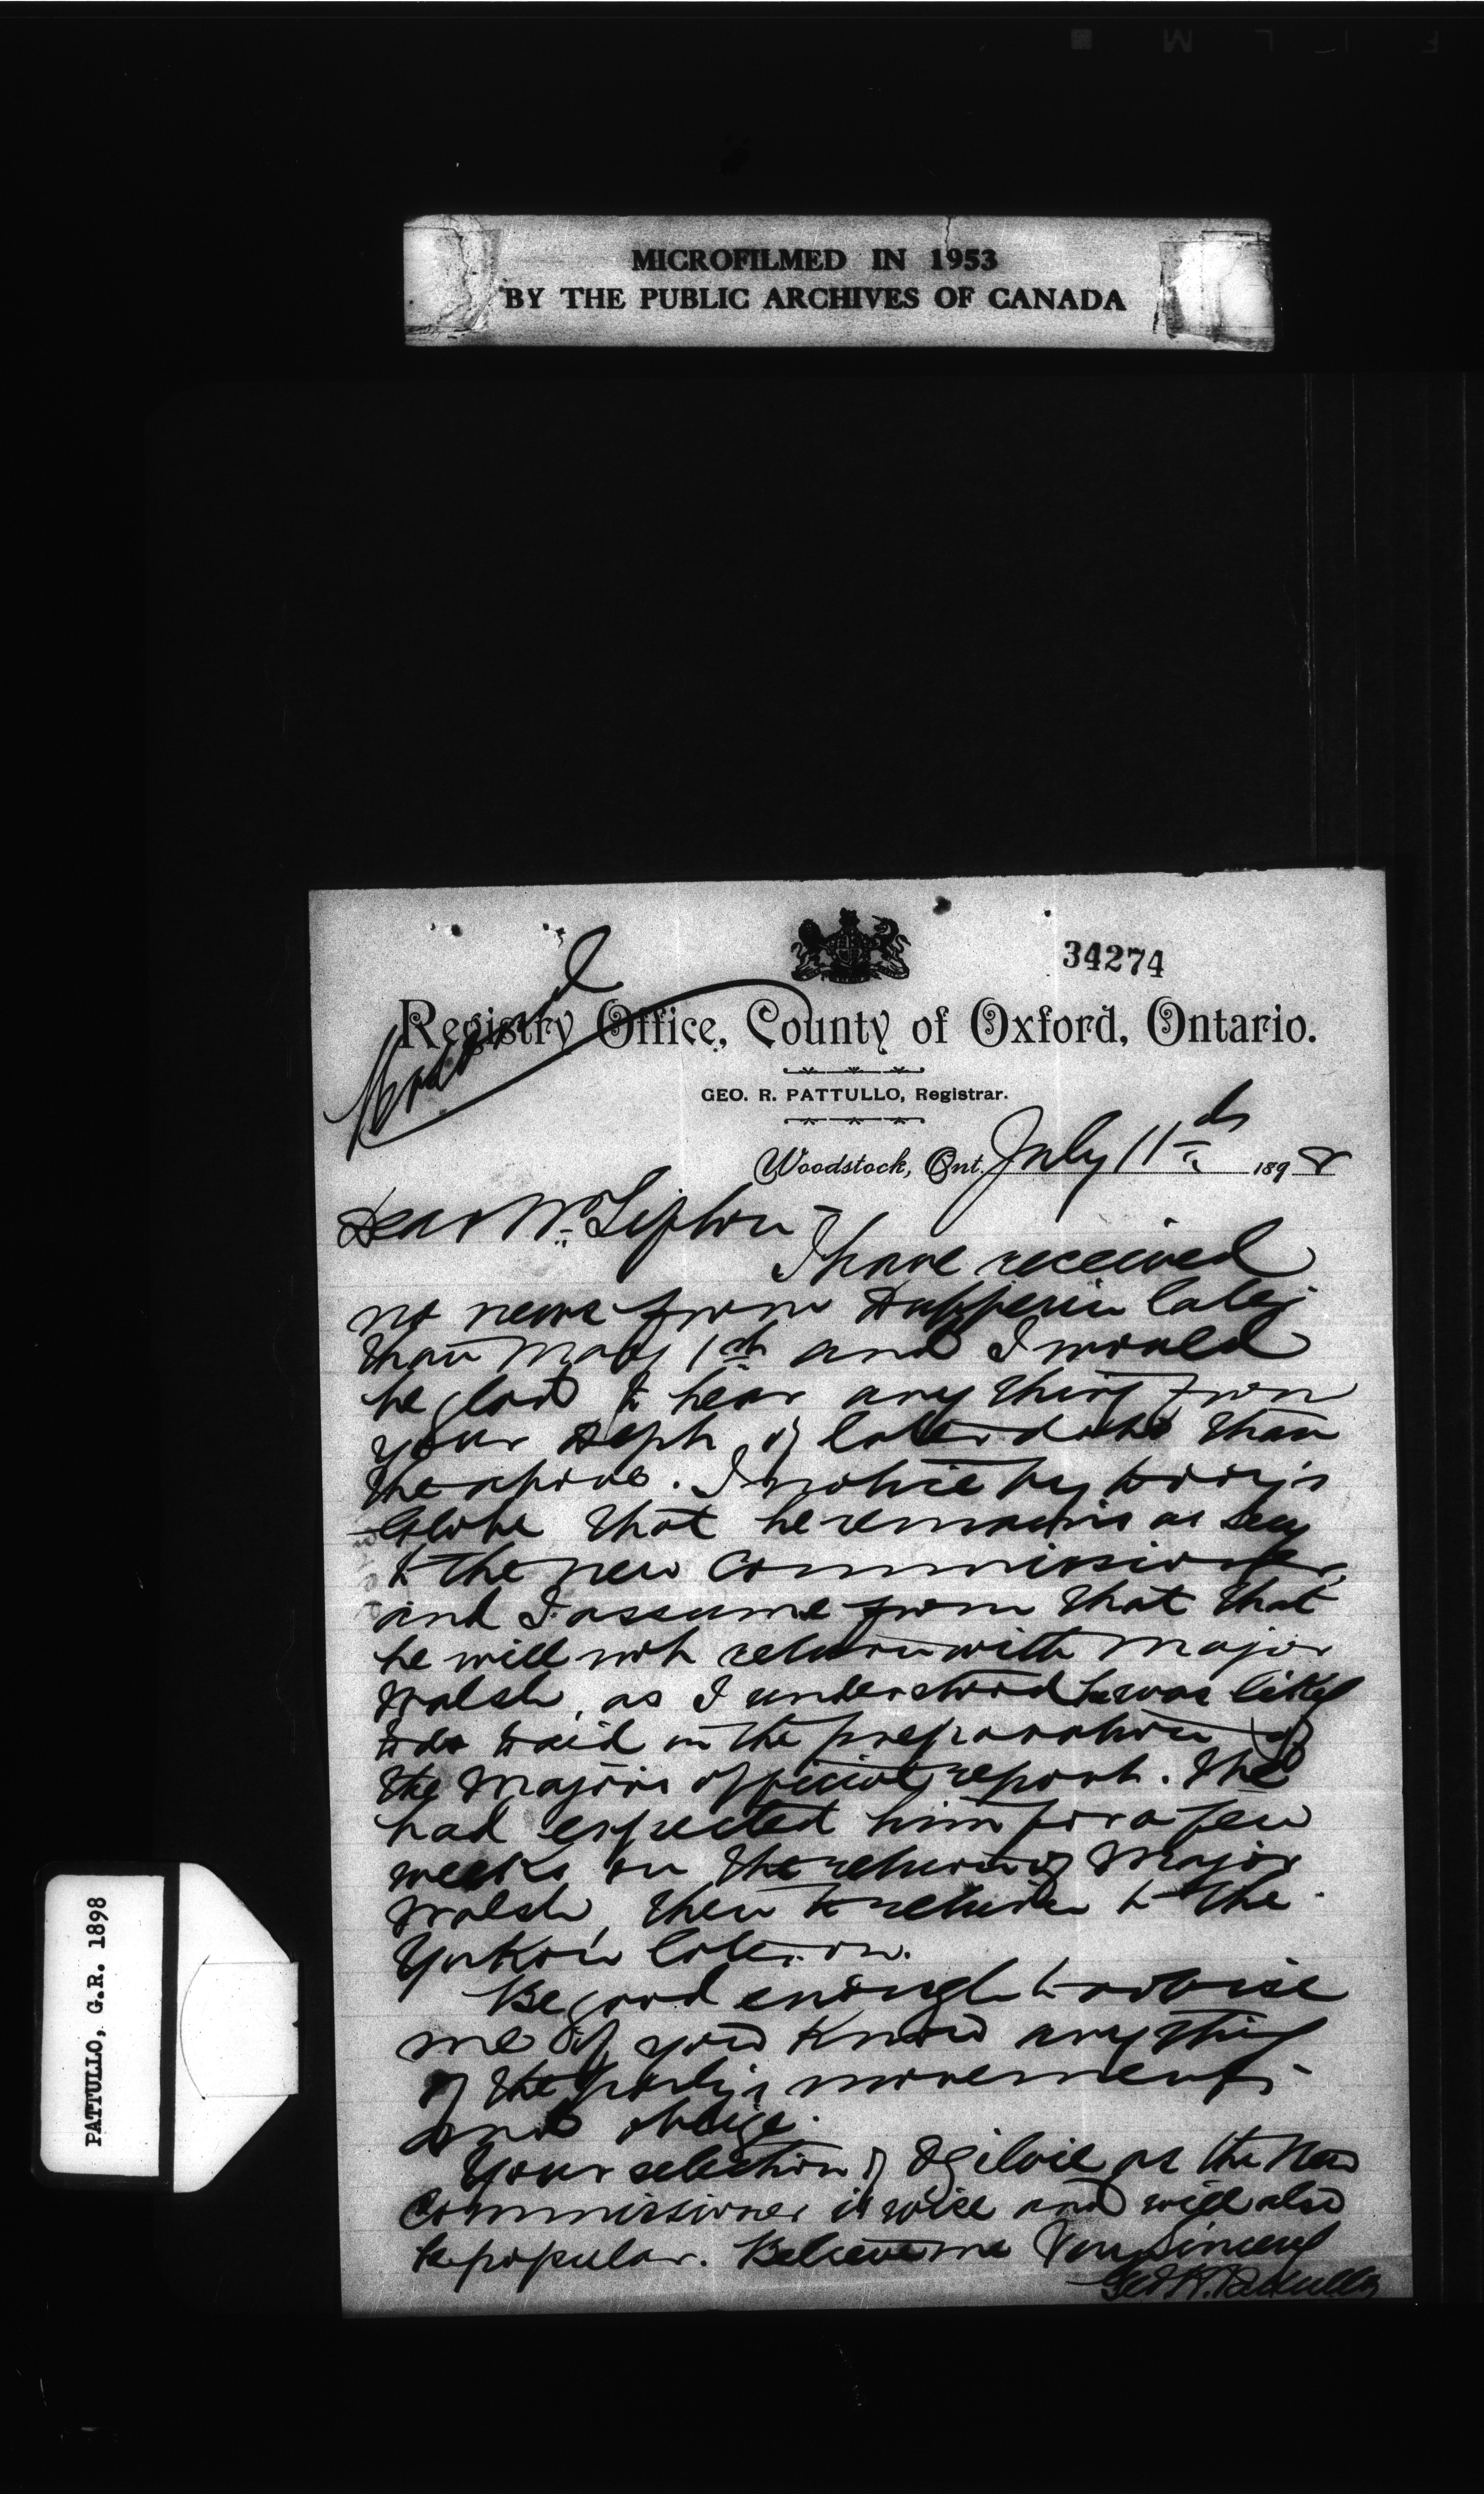 MICROFILMED IN 1953
BY THE PUBLIC ARCHIVES OF CANADA
34274
Personal
Registry Office, County of Oxford, Ontario.
GEO. R. PATTULLO, Registrar.
Woodstock, Ont. July 11th 1898
Dear Mr Sifton
I have received
no news from Dufferin later
than May 1st and I would
be glad to hear anything from
your Dept. of later date than
the above. I notice by today's
Globe that he remains as Secy
to the new Commissioner,
and I assume from that that
he will not return with Major
Walsh, as I understood he was likely
to do to aid in the preparation of
the Majors official report. We
had expected him for a few
weeks on the return of Major
Walsh, then to return to the
Yukon later on.
Be good enough to advise
me if you know anything
of the party's movements
and oblige.
Your selection of Ogilvie as the New
Commissioner is wise and will also
be popular. Believe me Very Sincerely
Geo R. Pattullo
PATTULLO, G.R. 1898